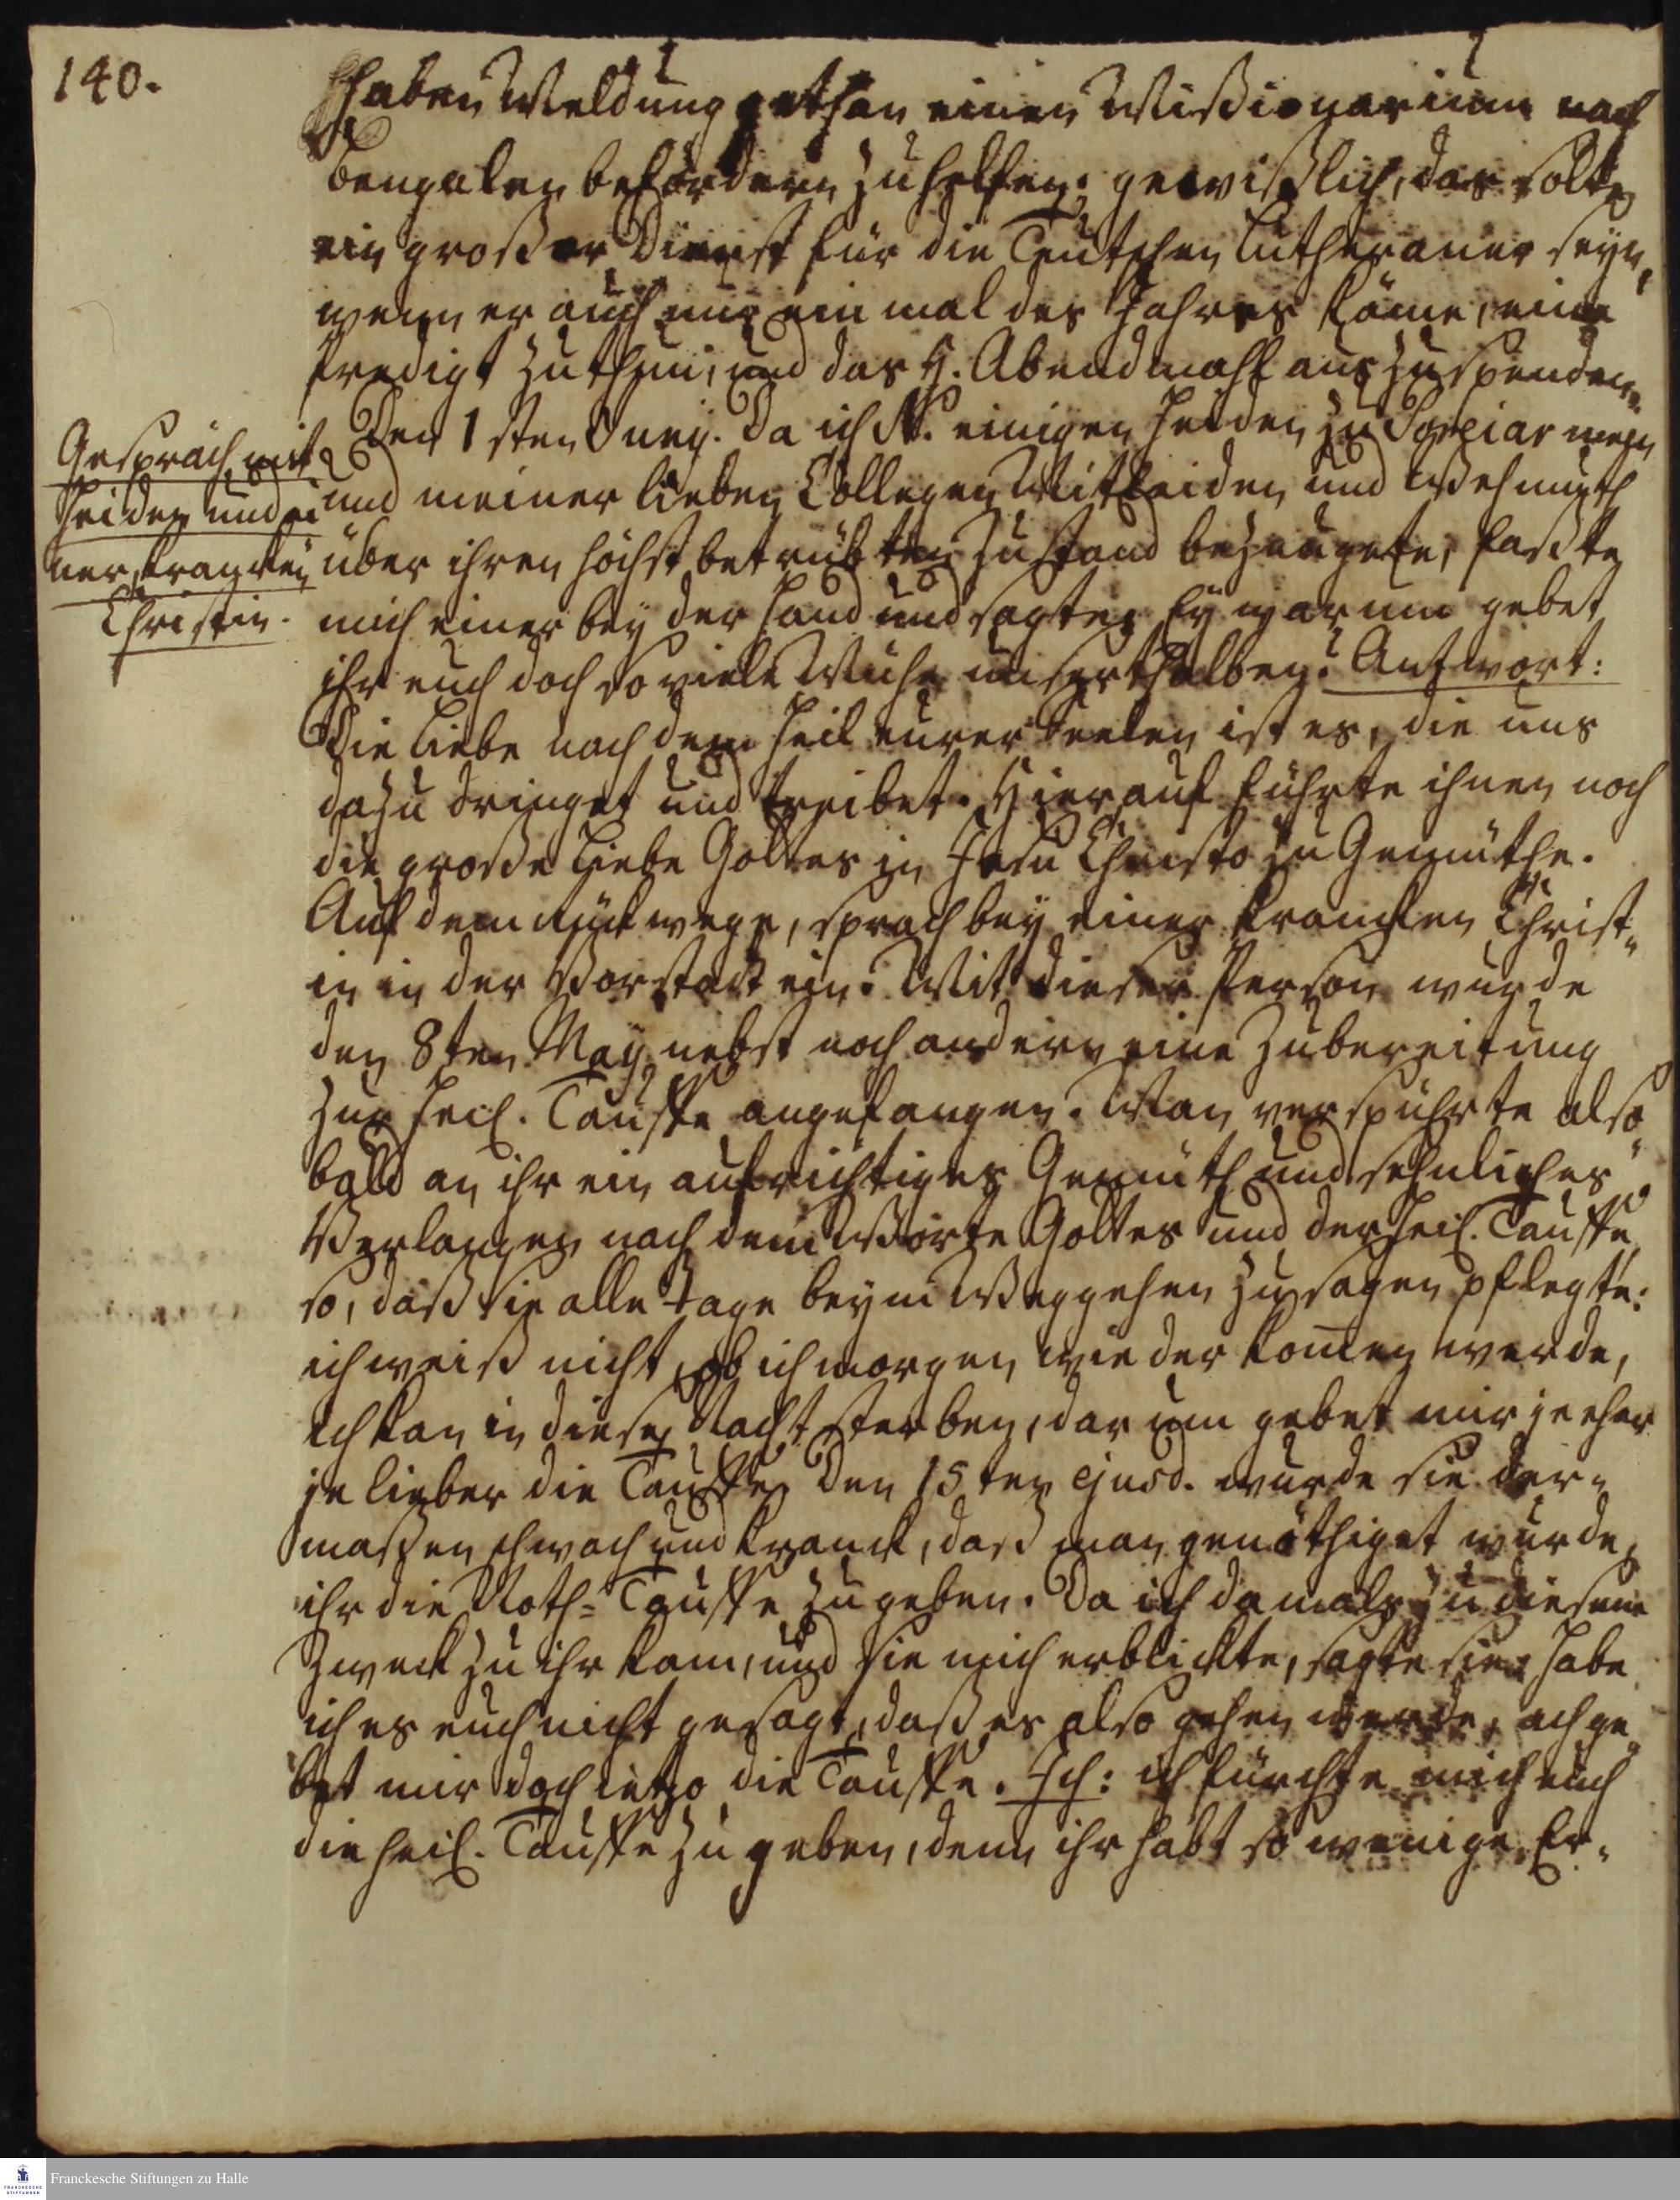 140.
haben Meldung gethan einen Mißionarium nach
Bengalen befördern zu helfen: gewißlich, das solte
ein großer Dienst für die Teutschen Lutheraner seyn,
wenn er auch nur ein mal des Jahres käme, eine
Predigt zu thun, und das H. Abendmahl auszuspenden.
Den 1sten Junij. Da ich N. einigen Heiden zu Poreiar mein
und meiner lieben Collegen Mitleiden und Wehmuth
über ihren höchst betrübten Zustand bezeugete, faßte
mich einer bey der Hand und sagte: Ey warum gebet
ihr euch doch so viele Mühe unserthalben? Antwort:
Die Liebe nach dem Heil eurer Seelen ist es, die uns
dazu dringet und treibet. Hierauf führte ihnen noch
die große Liebe Gottes in Jesu Christo zu Gemüthe.
Auf dem rückwege, sprach bey einer krancken Christ-
in in der Vorstadt ein. Mit dieser Person wurde
den 8ten May nebst noch andern eine Zubereitung
zur heil. Tauffe angefangen. Man verspührte also-
bald an ihr ein aufrichtiges Gemüth und sehnliches
Verlangen nach dem Worte Gottes und der heil. Tauffe
so, daß sie alle Tage beym Weggehen zu sagen pflegte:
ich weiß nicht, ob ich morgen wieder kom̄en werde,
ich kan in dieser Nacht sterben, darum gebet mir je eher
je lieber die Tauffe. Den 15ten ejusd. wurde sie der-
maßen schwach und kranck, daß man genöthiget wurde,
ihr die Noth-Tauffe zu geben. Da ich damals zu diesem
Zweck zu ihr kam, und sie mich erblickte, sagte sie: habe
ich es euch nicht gesagt, daß es also gehen werde, ach ge-
bet mir doch ietzo die Tauffe. Ich: ich fürchte mich euch
die heil. Tauffe zu geben, denn ihr habt so wenige Er-
Gespräch mit
Heiden und ei
ner krancken
Christin.
Franckesche Stiftungen zu Halle